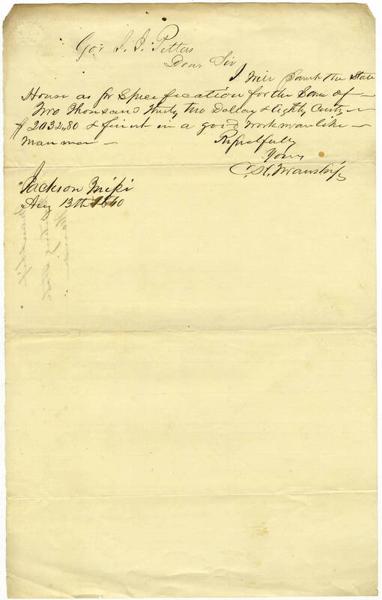 Gov J. J. Pettus
Dear Sir
I will Paint the State
House as pr Specification for the Sum of
Two Thousand thirty two Dollars & Eighty Cents
$2032,80 & finish in a good workmanlike
manner
Respectfully
Yours
C. H. Manship
Jackson Missi
Aug 13th 1860